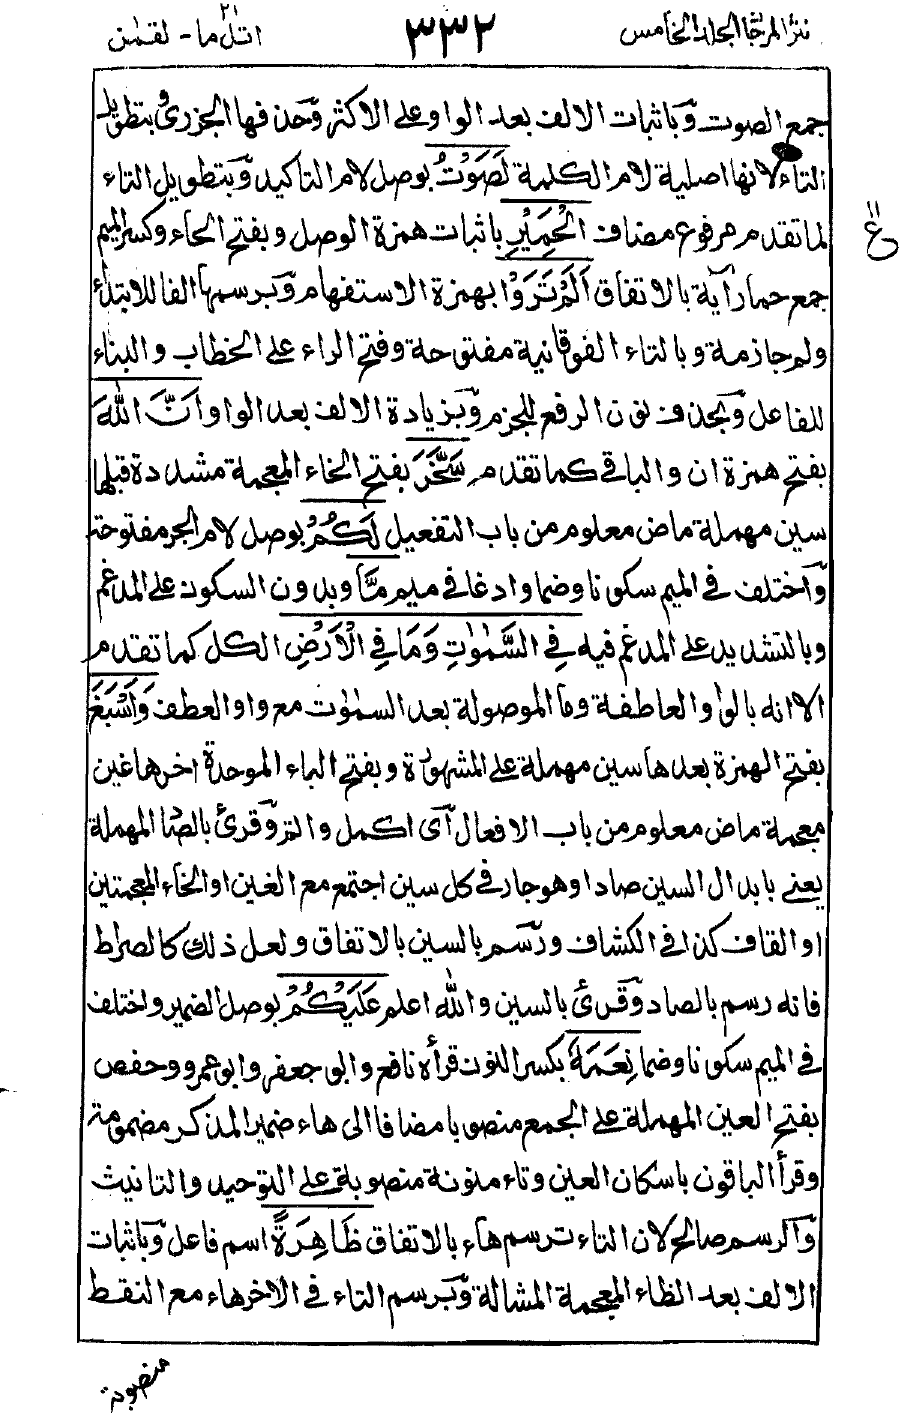 نثر المرجان المجلد الخامس
٣٣٢
اتل ما ٢١ - لقمٰن
جمع الصوت وَبا ثبات الالف بعد الواو على الاكثر وَحذفها الجزرى وَبتطويل
التاء لانها اصلية لام الكلمة لَصَوْتُ بوصل لام التاكيد وَبتطويل التاء
لما تقدم مرفوع مضاف الْحَمِيْرِ باثبات همزة الوصل وبفتح الحاء وكسر الميم
جمع حمار آية بالاتفاق اَلَمْ تَرَوْا بهمزة الاستفهام وَبرسمها الفا للابتداء
ولم جازمة وبالتاء الفوقانية مفتوحة وفتح الراء على الخطاب والبناء
للفاعل وَبحذف نون الرفع للجزم وَبزيادة الالف بعد الواو اَنَّ اللّٰهَ
بفتح همزة ان والباقى كما تقدم سَخَّرَ بفتح الخاء المعجمة مشددة قبلها
سين مهملة ماض معلوم من باب التفعيل لَكُمْ بوصل لام الجر مفتوحة
وَاختلف فى الميم سكونا وضما وادغاما فى ميم مَّا وبدون السكون على المدغم
وبالتشديد على المدغم فيه فِى السَّمٰوٰتِ وَمَا فِى الْاَرْضِ الكل كما تقدم
الا انه بالواو العاطفة وما الموصولة بعد السمٰوٰت مع واو العطف وَاَسْبَغَ
بفتح الهمزة بعدها سين مهملة على المشهورة وبفتح الباء الموحدة اخرها غين
معجمة ماض معلوم من باب الافعال آى اكمل واتم وَقرئ بالصاد المهملة
يعنى بابدال السين صادا وهو جار فى كل سين اجتمع مع الغين او الخاء المعجمتين
او القاف كذا فى الكشاف ورسم بالسين بالاتفاق ولعل ذلك كالصراط
فانه رسم بالصاد وَقرئ بالسين والله اعلم عَلَيْكُمْ بوصل الضمير واختلف
فى الميم سكونا وضما نِعَمَهٗ بكسر النون قرأه نافع وابو جعفر وابو عمرو وحفص
بفتح العين المهملة على الجمع منصوبا مضافا الى هاء ضمير المذكر مضمومة
وقرأ الباقون باسكان العين وتاء منونة منصوبة على التوحيد والتانيث
وَالرسم صالح لان التاء ترسم هاء بالاتفاق ظَاهِرَةً اسم فاعل وَباثبات
الالف بعد الظاء المعجمة المشالة وَبرسم التاء فى الاخر هاء مع النقط
منصوبة